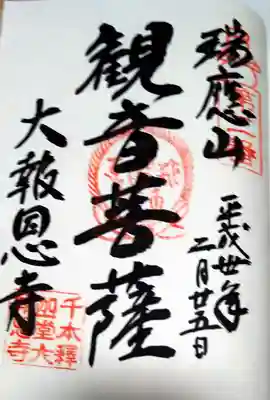 瑞應山
平成卅年
二月廿五日
観音菩薩
大報恩寺
千本釋
迦堂大
報恩寺